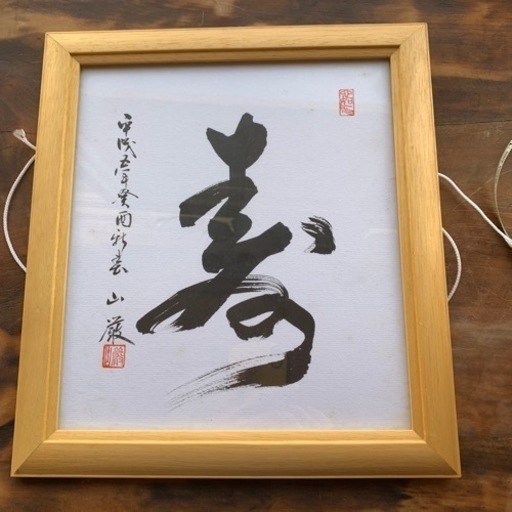 寿
平成五年癸酉新春 山巌